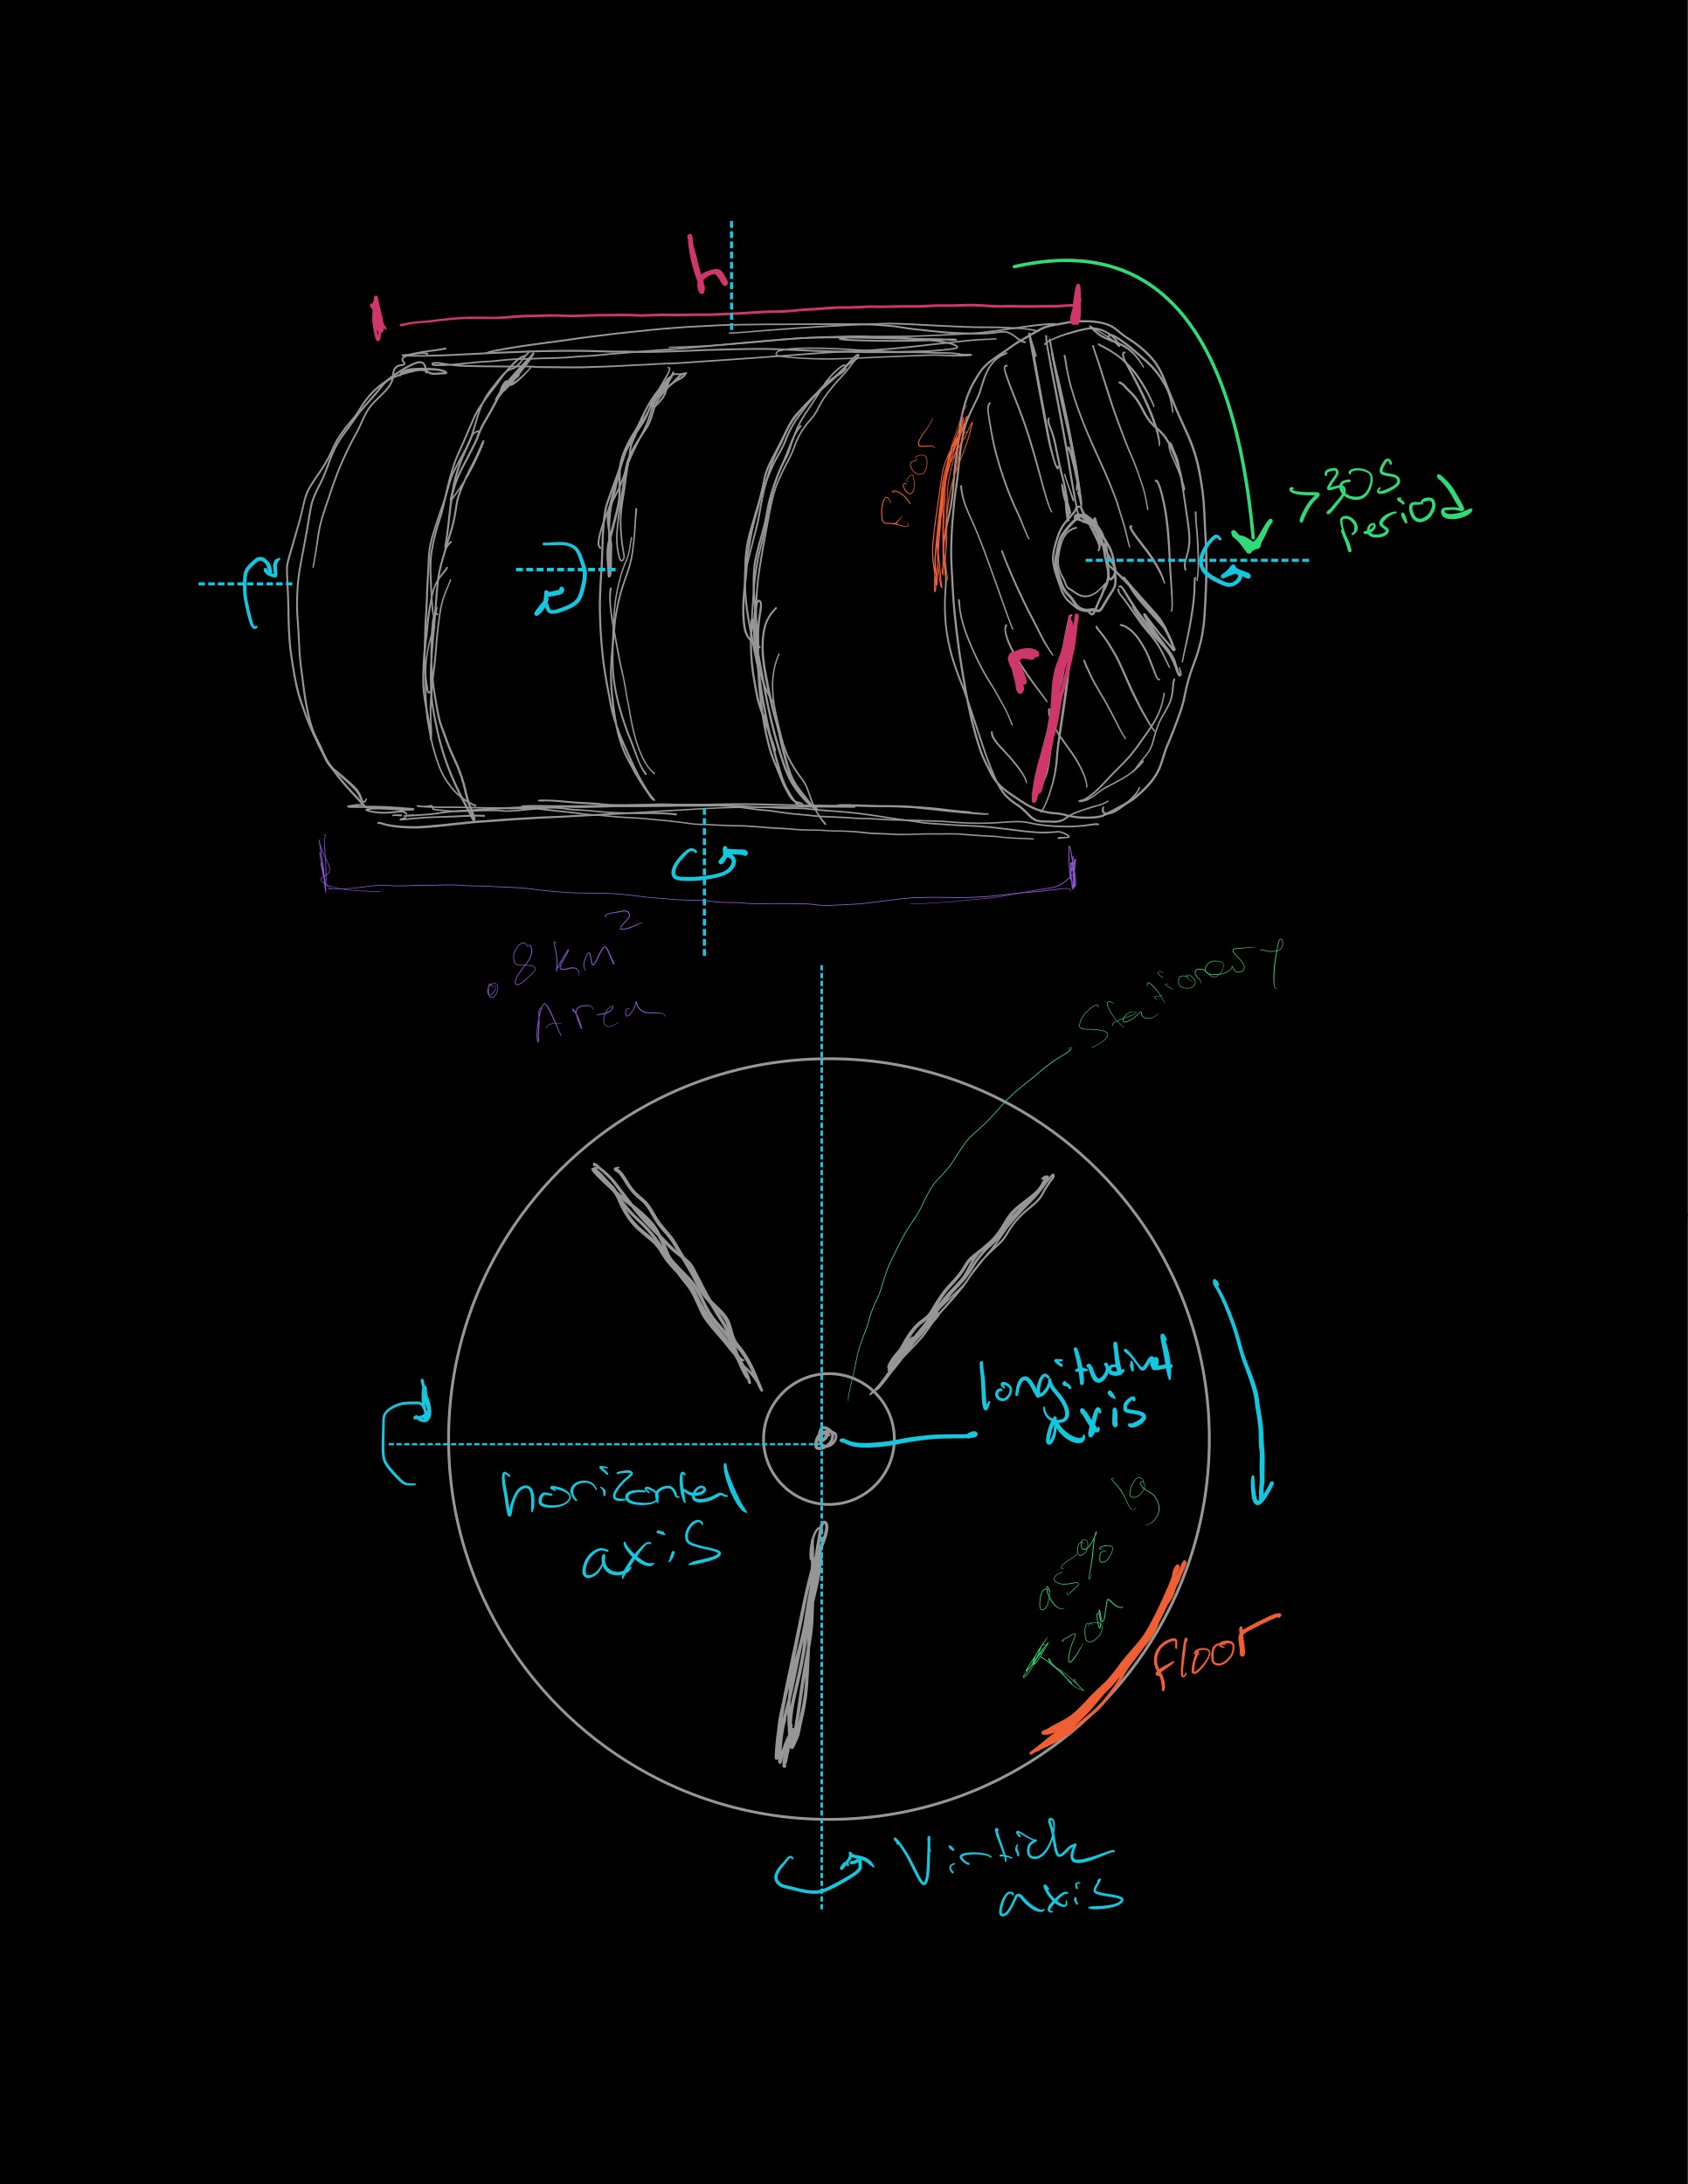 h
Floor
>30s
period
r
.8 km²
Area
Stationary
longitudinal
axis
horizontal
axis
1g
floor
axis